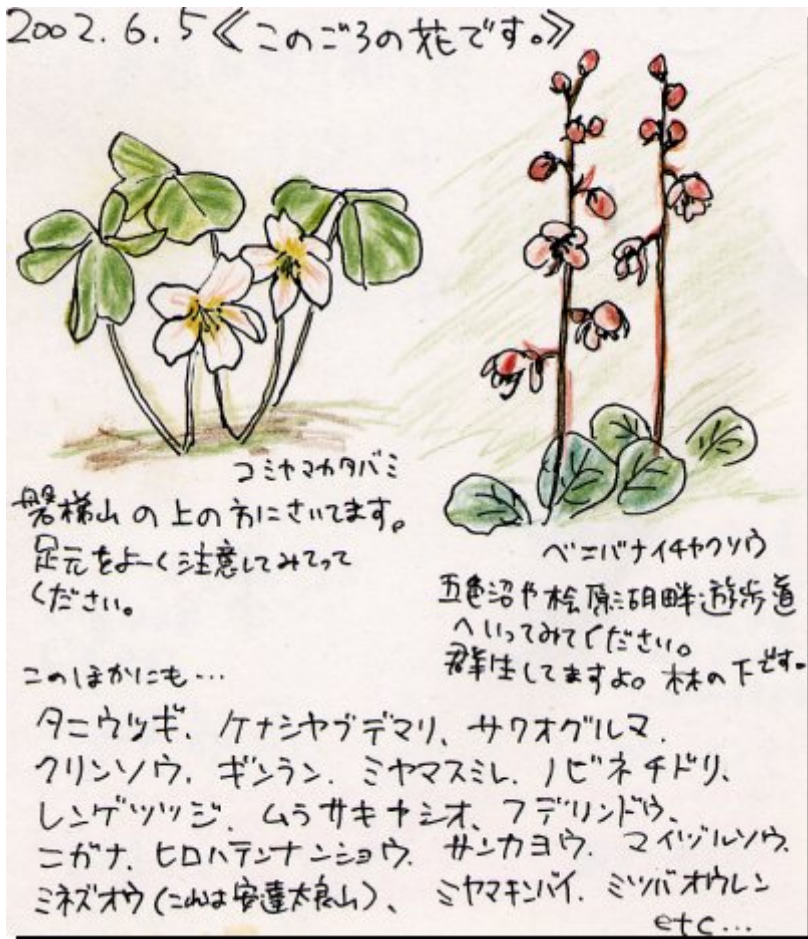 2002.6.5《このごろの花です。》
コミヤマカタバミ
磐梯山の上の方にさいてます。
足元をよーく注意してみてって
ください。
ベニバナイチヤクソウ
五色沼や桧原湖畔遊歩道
へいってみてください。
群生してますよ。林の下です。
このほかにも…
タニウツギ、ケナシヤブデマリ、サワオグルマ、
クリンソウ、ギンラン、ミヤマスミレ、ノビネチドリ、
レンゲツツジ、ムラサキヤシオ、フデリンドウ、
ニガナ、ヒロハテンナンショウ、サンカヨウ、マイヅルソウ、
ミネズオウ(これは安達太良山)、ミヤマキンバイ、ミツバオウレン
etc...